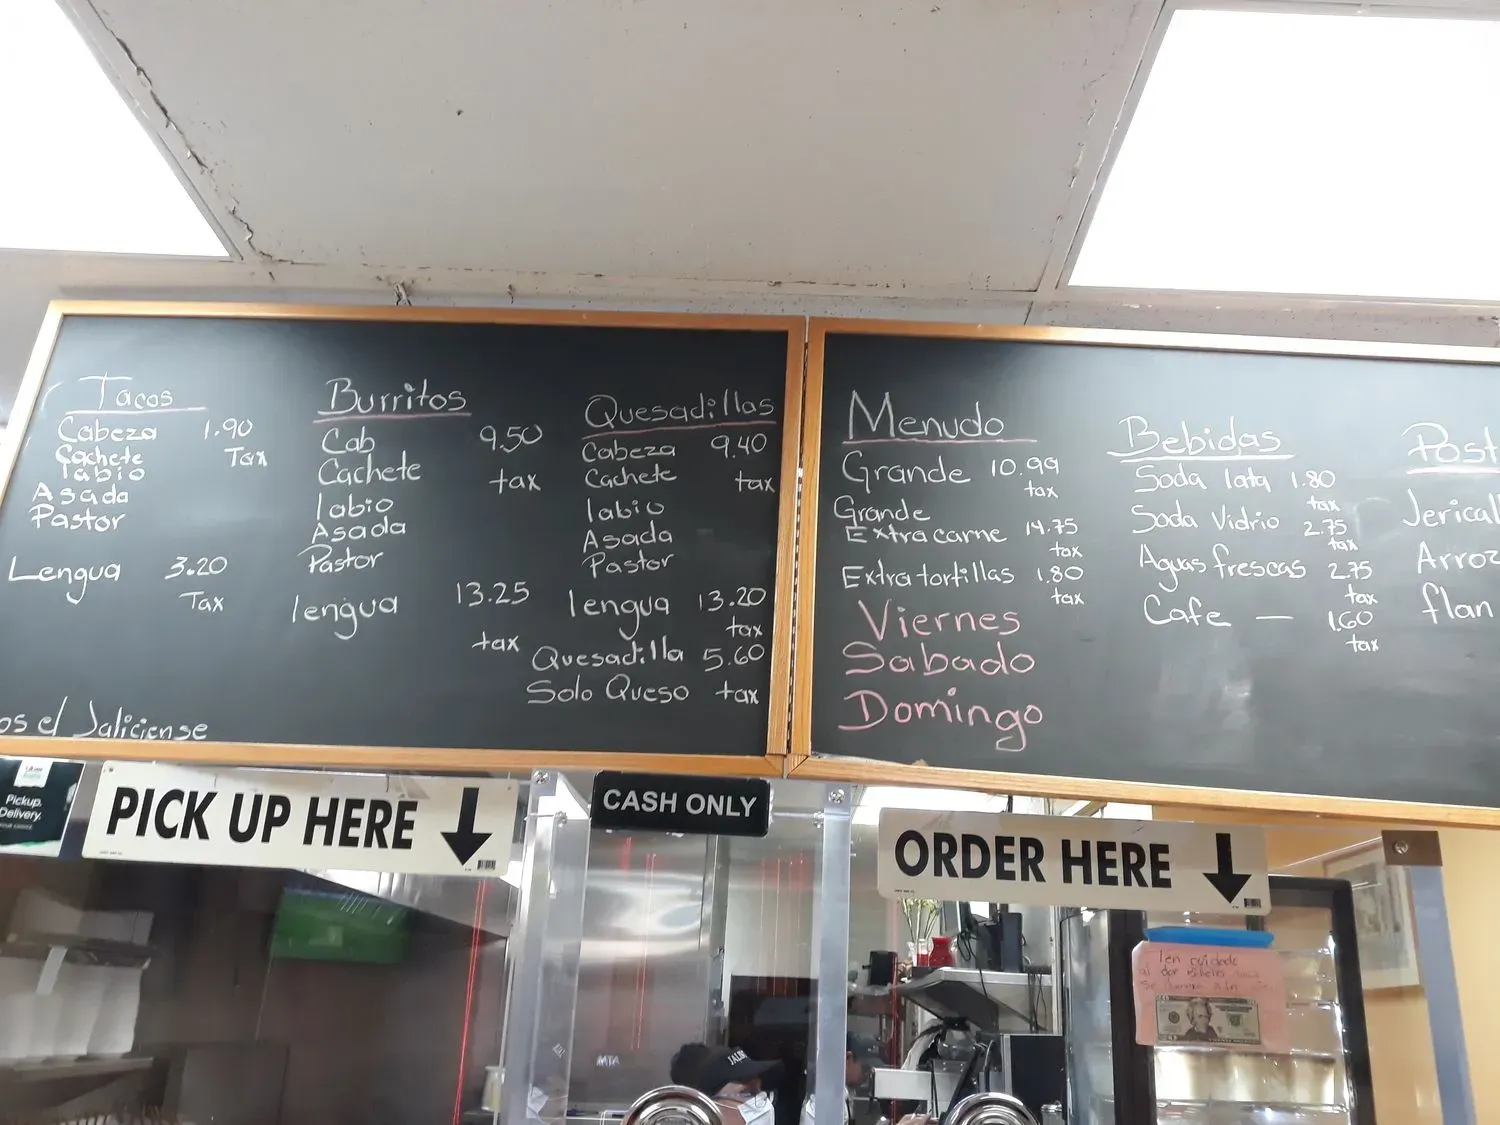 Tacos
Cabeza 1.90
Cachete Tax
labio
Asada
Pastor
Lengua 3.20
Tax
os el Jaliciense
Burritos
Cab 9.50
Cachete tax
labio
Asada
Pastor
lengua 13.25
tax
Quesadillas
Cabeza 9.40
Cachete tax
labio
Asada
Pastor
lengua 13.20
tax
Quesadilla 5.60
Solo Queso tax
Menudo
Grande 10.99
tax
Grande
Extra carne 14.75
tax
Extra tortillas 1.80
tax
Viernes
Sabado
Domingo
Bebidas
Soda lata 1.80
tax
Soda Vidrio 2.75
tax
Aguas frescas 2.75
tax
Cafe — 1.60
tax
Post
Jerical
Arroz
flan
Pickup.
Delivery.
PICK UP HERE
CASH ONLY
ORDER HERE
Ten cuidado
al dar Billetes
MTA